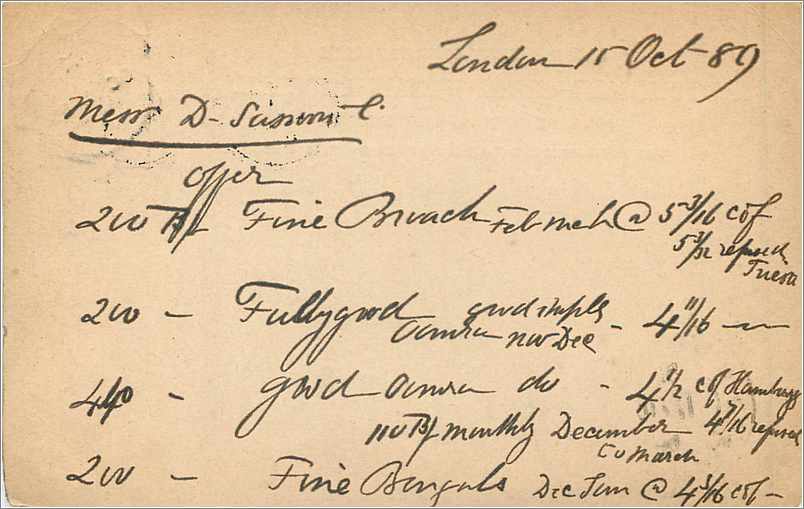 London 15 Oct 89
Messrs D. Sassoon & C.
offer
200 B/ Fine Broach Feb Mch @ 5 3/16 cof
5 3/32 refused
Trieste
200 — Fullygood good staple - 4 11/16 —
Oomra nov Dec
440 - good Oomra do - 4 1/2 cof Hamburg
110 B/ monthly December 4 7/16 refused
to March
200 - Fine Bengals Dec Jan @ 4 3/16 cof -